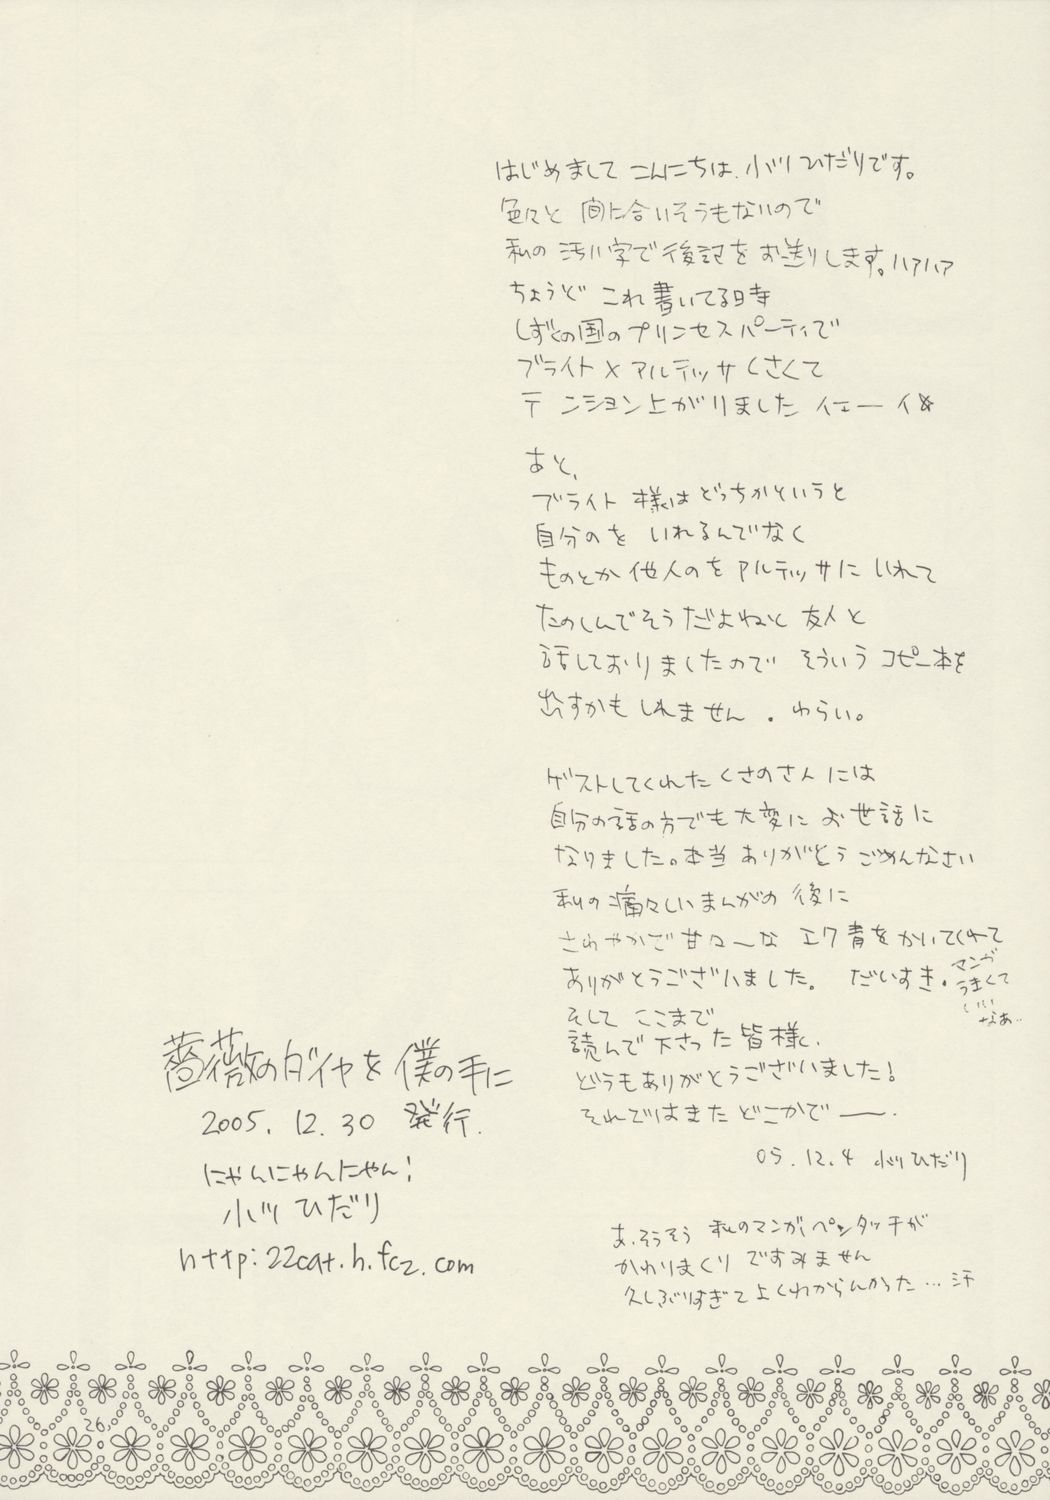 はじめまして こんにちは、小川ひだりです。
色々と 間に合いそうもないので
私の 汚い字で 後記を お送りします。ハァハァ
ちょうど これ書いてる時
しずくの国のプリンセスパーティで
ブライト×アルテッサくさくて
テンション上がりました イェーイ☆
あと、
ブライト様はどっちかというと
自分のを いれるんでなく
ものとか他人のを アルテッサに いれて
たのしんでそうだよねと 友人と
話しておりましたので そういう コピー本を
出すかもしれません。わらい。
ゲストしてくれた くさのさんには
自分の話の方でも大変に お世話に
なりました。本当 ありがとう ごめんなさい
私の 痛々しいまんがの 後に
さわやかで甘々〜な エク青をかいてくれて
ありがとうございました。 だいすき。
マンガ
うまくて
いい
なぁ..
そして ここまで
読んで下さった皆様、
どうもありがとうございました!
それではまた どこかで――.
05.12.4 小川ひだり
あ、そうそう 私のマンガ、ペンタッチが
かわりまくり ですみません
久しぶりすぎて よくわからんかった…汗
薔薇のダイヤを 僕の手に
2005.12.30 発行.
にゃんにゃんにゃん!
小川 ひだり
http:22cat.h.fc2.com
26